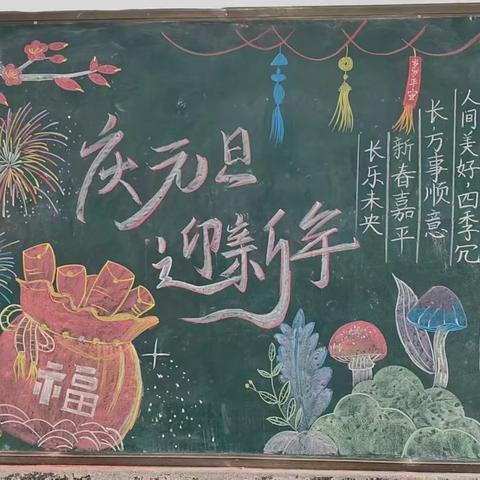 庆元旦
迎新年
岁岁平安
人间美好，四季冗
长，方事顺意
新春嘉平
长乐未央
福